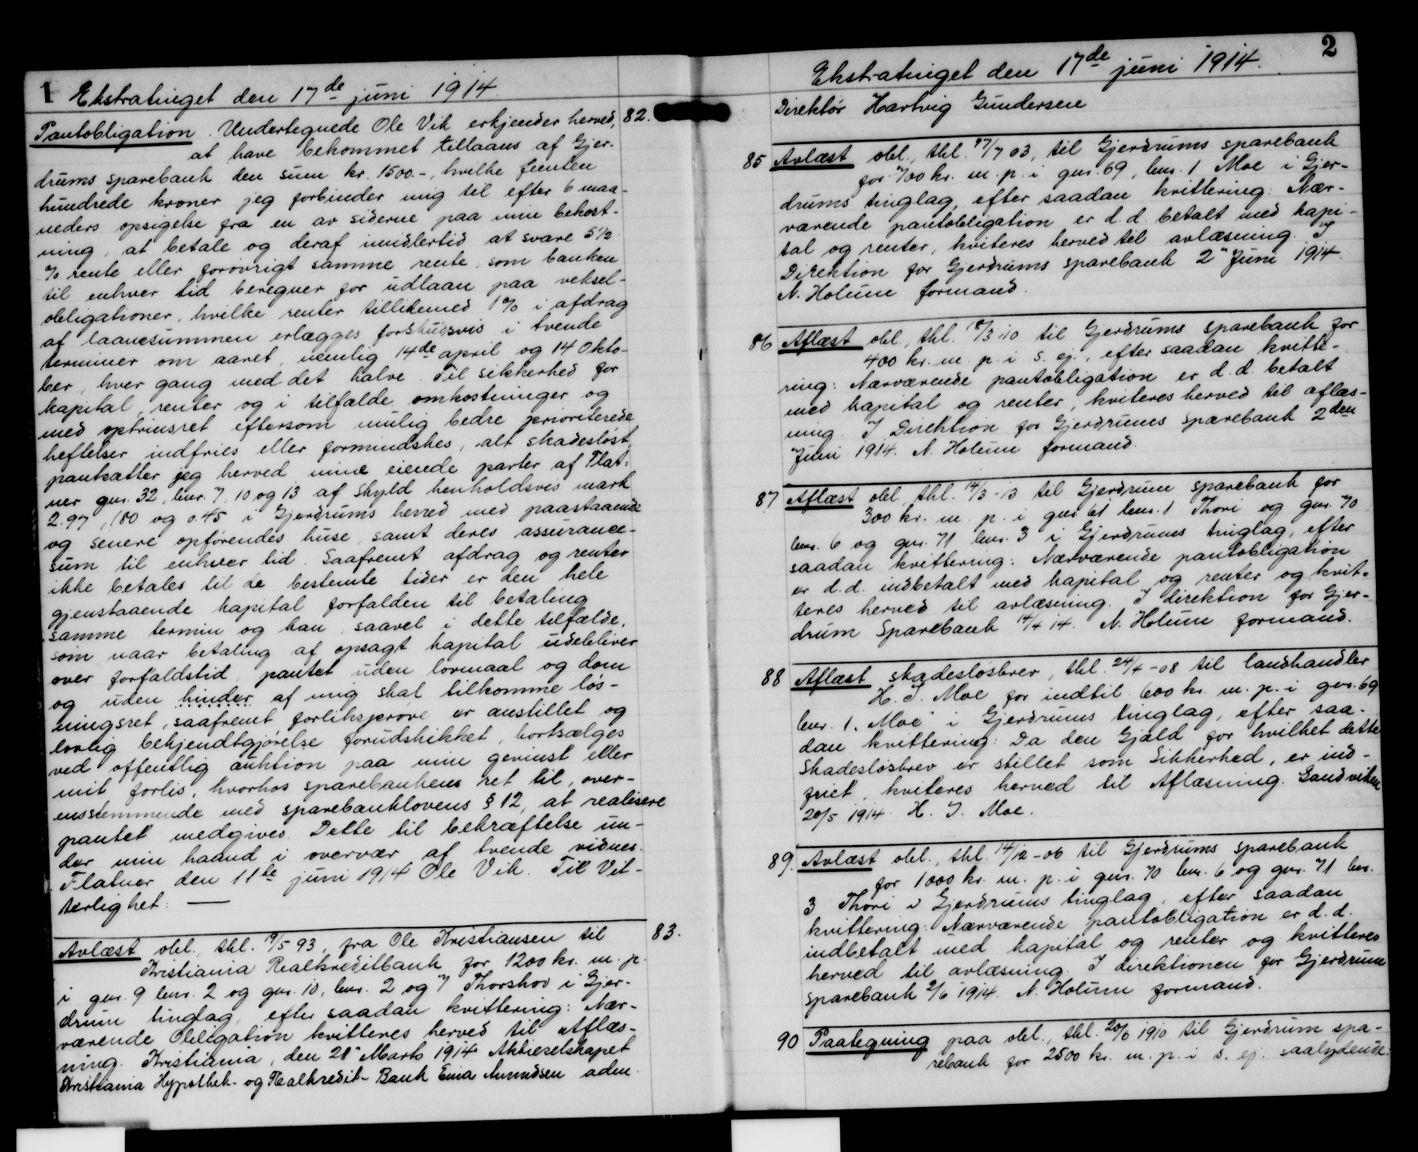 1 Ekstratinget den 17de juni 1914
Pantobligation. Undertegnede Ole Vik erkjender herved, 82.
at have bekommet tillaans af Gjer-
drums sparebank den sum kr. 1500.-, hvilke femten
hundrede kroner jeg forbinder mig til efter 6 maa-
neders opsigelse fra en av siderne paa min bekost-
ning, at betale og deraf imidlertid at svare 5½
% rente eller forøvrigt samme rente som banken
til enhver tid beregner for udlaan paa veksel-
obligationer, hvilke renter tillikemed 1% i afdrag
af laanesummen erlægges forskudsvis i tvende
terminer om aaret, nemlig 14de april og 14 Okto-
ber, hver gang med det halve. Til sikkerhed for
kapital, renter og i tilfælde omkostninger og
med optrinsret eftersom mulig bedre prioriterede
heftelser indfries eller formindskes, alt skadesløst,
pantsætter jeg herved mine eiende parter af Flat-
ner gnr. 32, bnr. 7, 10 og 13 af skyld henholdsvis mark
2.97, 1.80 og 0.45 i Gjerdrums herred med paastaaende
og senere opførendes huse, samt deres assurance-
sum til enhver tid. Saafremt afdrag og renter
ikke betales til de bestemte tider er den hele
gjenstaaende kapital forfalden til betaling
samme termin og kan saavel i dette tilfælde,
som naar betaling af opsagt kapital udebliver
over forfaldstid, pantet uden lovmaal og dom
og uden hinder af mig skal tilkomme løs-
ningsret, saafremt forliksprøve er anstillet og
lovlig bekjendtgjørelse forudskikket, bortsælges
ved offentlig auktion paa min gevinst eller
mit forlis, hvorhos sparebankens ret til, over-
ensstemmende med sparebanklovens § 12, at realisere
pantet medgives. Dette til bekræftelse un-
der min haand i overvær af tvende vidner.
Flatner den 11te juni 1914 Ole Vik. Til Vit-
terlighet: —
Avlæst obl., thl. 9/5 93, fra Ole Kristiansen til 83.
Kristiania Realkreditbank for 1200 kr. m. p.
i gnr. 9 bnr. 2 og gnr. 10, bnr. 2 og 7 Thorshov i Gjer-
drum tinglag, efter saadan kvittering: Nær-
værende Obligation kvitteres herved til Aflæs-
ning. Kristiania, den 28' Marts 1914 Aktieselskapet
Kristiania Hypothek- og Realkredit-Bank Amundsen adm.
Ekstratinget den 17de juni 1914. 2
Direktør Hartvig Gundersen
85 Avlæst obl., thl. 17/7 03, til Gjerdrums sparebank
for 700 kr. m. p. i gnr. 69, bnr. 1 Moe i Gjer-
drums tinglag, efter saadan kvittering: Nær-
værende pantobligation er d. d. betalt med kapi-
tal og renter, kviteres herved til avlæsning. I
Direktion for Gjerdrums sparebank 2' Juni 1914.
N. Holum formand.
86 Aflæst obl., thl. 18/3 10 til Gjerdrums sparebank for
400 kr. m. p. i s. ej., efter saadan kvitte-
ring: Nærværende pantobligation er d. d. betalt
med kapital og renter, kviteres herved til aflæs-
ning. I Direktion for Gjerdrums Sparebank 2den
Juni 1914. N. Holum formand.
87 Aflæst obl., thl. 14/3-13 til Gjerdrum sparebank for
300 kr. m. p. i gnr. 61 bnr. 1 Thori og gnr. 70
bnr. 6 og gnr. 71 bnr. 3 i Gjerdrums tinglag, efter
saadan kvittering: Nærværende pantobligation
er d. d. indbetalt med kapital og renter og kvit-
teres herved til avlæsning. I direktion for Gjer-
drum Sparebank 14/4 14. N. Holum formand.
88 Aflæst skadesløsbrev, thl. 24/4-08 til landhandler
H. J. Moe for indtil 600 kr. m. p. i gnr. 69
bnr. 1. Moe i Gjerdrums tinglag, efter saa-
dan kvittering: Da den Gjæld for hvilket dette
Skadesløsbrev er stillet som Sikkerhed, er ind-
friet, kviteres herved til Aflæsning. Sandviken
20/5 1914. H. J. Moe.
89. Avlæst obl., thl. 14/12-06 til Gjerdrums sparebank
for 1000 kr. m. p. i gnr. 70 bnr. 6 og gnr. 71 bnr.
3 Thori i Gjerdrums tinglag, efter saadan
kvittering: Nærværende pantobligation er d. d.
indbetalt med kapital og renter og kvitteres
herved til avlæsning. I direktionen for Gjerdrum
sparebank 2/6 1914. N. Holum formand.
90 Paategning paa obl., thl. 20/6 1910 til Gjerdrum spa-
rebank for 2500 kr. m. p. i s. ej. saalydende: